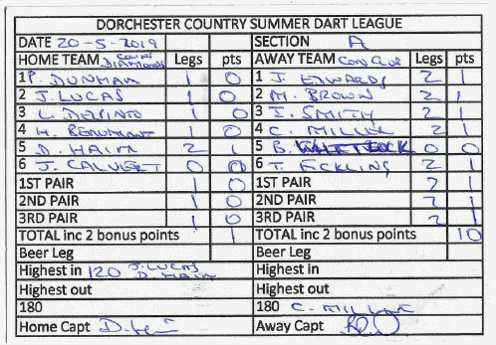 DORCHESTER COUNTRY SUMMER DART LEAGUE
DATE 20-5-2019 SECTION A
HOME TEAM COUNTY DIAMONDS Legs pts AWAY TEAM CON CLUB Legs pts
1 P. DUNHAM 1 0 1 J. EDWARDS 2 1
2 J. LUCAS 1 0 2 M. BROWN 2 1
3 L. 1 0 3 I. SMITH 2 1
4 H. BEAUMONT 1 0 4 C. MILLER 2 1
5 D. HAIM 2 1 5 B. 0 0
6 J. CALVERT 0 0 6 T. ECKLING 2 1
1ST PAIR 1 0 1ST PAIR 2 1
2ND PAIR 1 0 2ND PAIR 2 1
3RD PAIR 1 0 3RD PAIR 2 1
TOTAL inc 2 bonus points 1 TOTAL inc 2 bonus points 10
Beer Leg Beer Leg
Highest in 120 J. LUCAS D. HAIM Highest in
Highest out Highest out
180 180 C. MILLER
Home Capt Away Capt